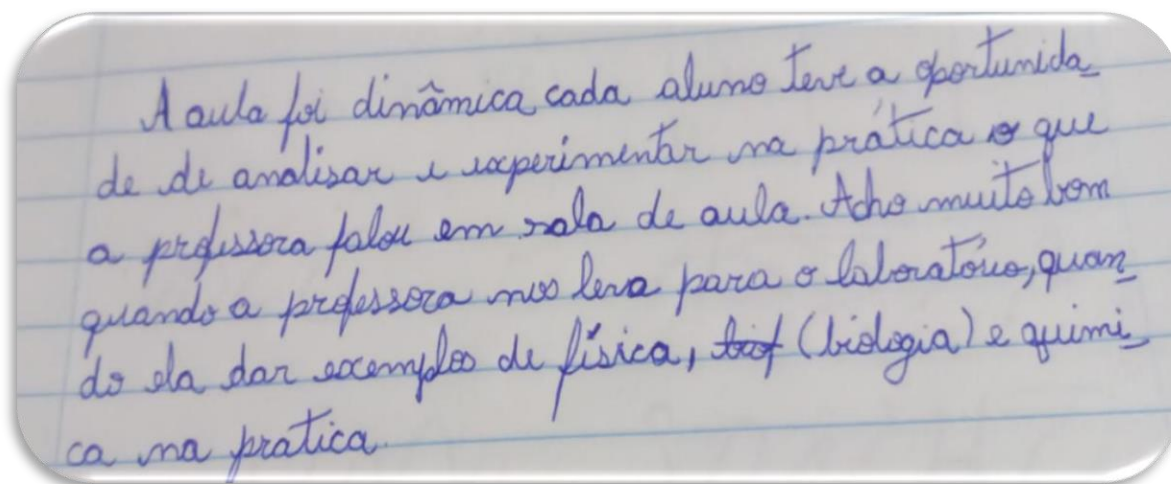 A aula foi dinâmica cada aluno teve a oportunida_
de de analisar e experimentar na prática o que
a professora falou em sala de aula. Acho muito bom
quando a professora nos leva para o laboratório, quan_
do ela dar exemplos de física, (biologia) e quimi_
ca na pratica.